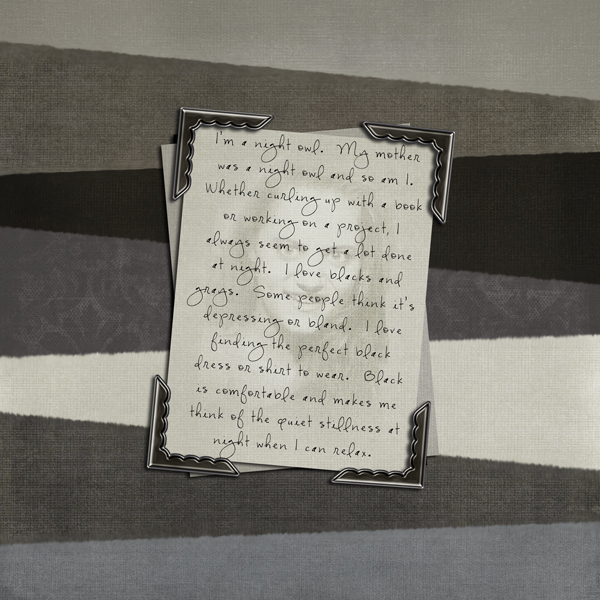 I'm a night owl. My mother
was a night owl and so am I.
Whether curling up with a book
or working on a project, I
always seem to get a lot done
at night. I love blacks and
grays. Some people think it's
depressing or bland. I love
finding the perfect black
dress or shirt to wear. Black
is comfortable and makes me
think of the quiet stillness at
night when I can relax.